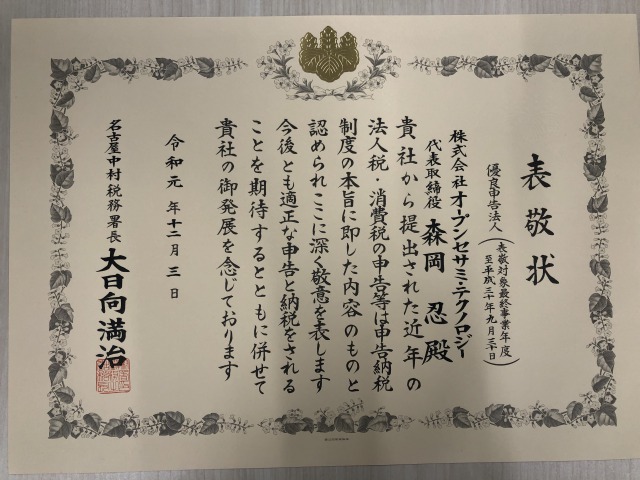 表敬状
優良申告法人（表敬対象最終事業年度
至平成三十年九月三十日）
株式会社オープンセサミ・テクノロジー
代表取締役 森岡 忍殿
貴社から提出された近年の
法人税・消費税の申告等は申告納税
制度の本旨に即した内容のものと
認められここに深く敬意を表します
今後とも適正な申告と納税をされる
ことを期待するとともに併せて
貴社の御発展を念じております
令和元年十二月三日
名古屋中村税務署長 大日向満治